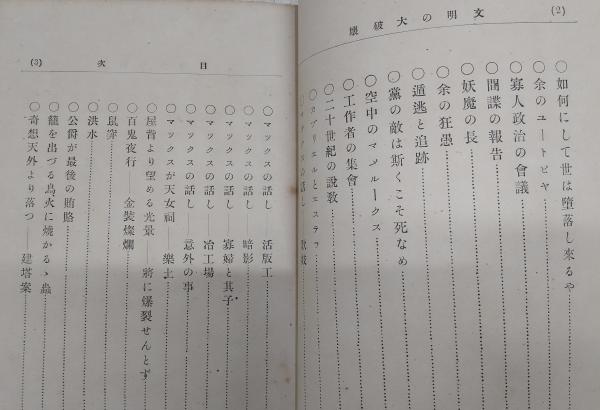 (2)
文明の大破壊
○如何にして世は堕落し来るや
○余のユートピヤ
○寡人政治の會議
○間諜の報告
○妖魔の長
○余の狂愚
○遁逃と追跡
○黨の敵は斯くこそ死なめ
○空中のマメルークス
○工作者の集會
○二十世紀の説教
○カブリエルとエステラ
(3)
目次
○マックスの話し——活版工
○マックスの話し——暗影
○マックスの話し——寡婦と其子
○マックスの話し——冶工場
○マックスの話し——意外の事
○マックスが天女祠——樂土
○屋背より望める光景——將に爆裂せんとす
○百鬼夜行——金裝燦爛
○鼠竄
○洪水
○公爵が最後の賄賂
○籠を出づる鳥火に燒かるゝ蟲
○奇想天外より落つ——建塔案